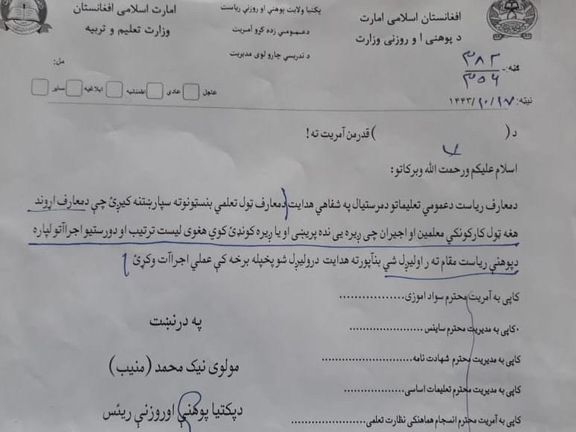 افغانستان اسلامی امارت
د پوهنې ا و روزنې وزارت
پکتیا ولایت پوهنې او روزنې ریاست
دعمومي زده کړو آمریت
د تدریسي چارو لوی مدیریت
امارت اسلامی افغانستان
وزارت تعلیم و تربیه
ګڼه:- ۳۸۲
۳۵۶
نیټه: ۱۴۴۳/۱۰/۱۷
مل:
عاجل
عادی
اطمنانیه
ابلاغیه
سایر
د( ) قدرمن آمریت ته !
اسلام علیکم ورحمت الله وبرکاتو:
دمعارف ریاست دعمومي تعلیماتو دمرستیال په شفاهي هدایت دمعارف ټول تعلمي بنسټونوته سپارښتنه کیږئ چې دمعارف اړوند
هغه ټول کارکونکي معلمین او اجیران چې ږیره یی نده پریښی او یا ږیره کونډئ کوي هغوی لیست ترتیب او دورستیو اجراآتو لپاره
دپوهنې ریاست مقام ته را ولیږل شي بنآپورته هدایت درولیږل شو پخپله برخه کې عملي اجراآت وکړئ
کاپی به آمریت محترم سواد اموزی
کاپی به مدیریت محترم ساینس
کاپی به مدیریت محترم شهادت نامه
کاپی به مدیریت محترم تعلیمات اساسی
کاپی به آمریت محترم انسجام هماهنکی نظارت تعلمی
په درنښت
مولوی نیک محمد (منیب)
دپکتیا پوهنې اوروزنې ریئس